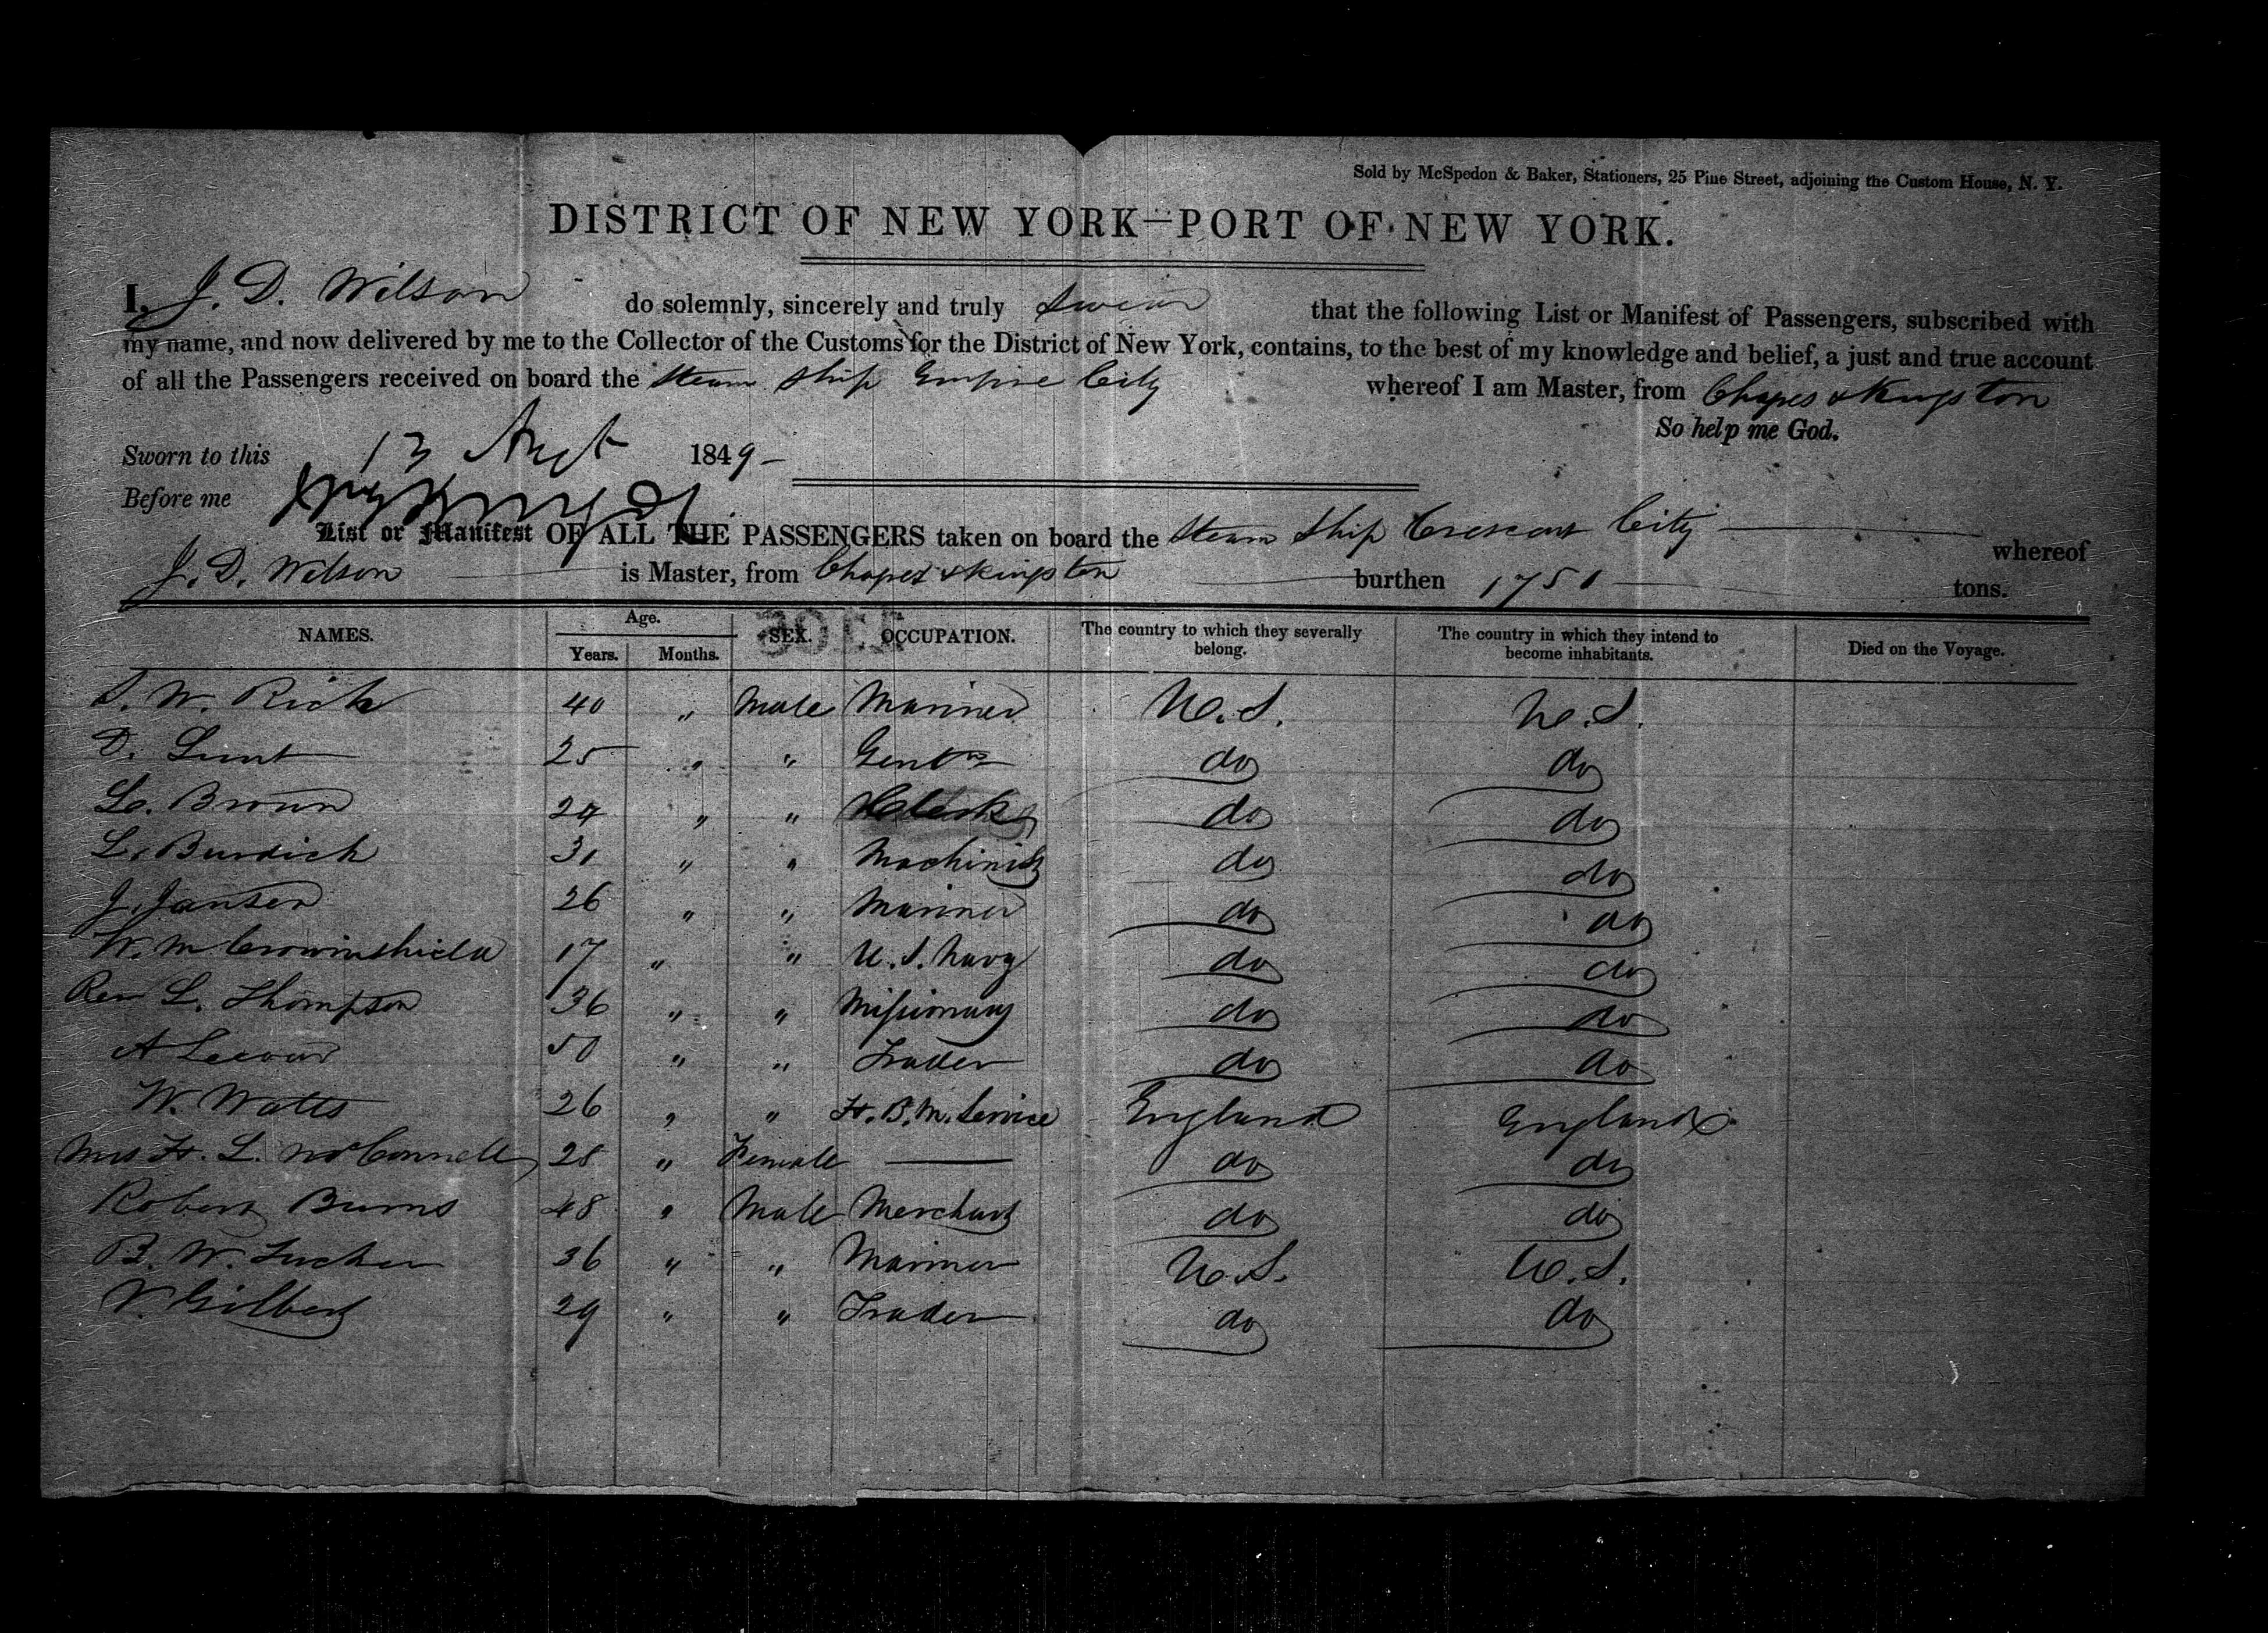 Sold by McSpedon & Baker, Stationers, 25 Pine Street, adjoining the Custom House, N. Y.
DISTRICT OF NEW YORK—PORT OF NEW YORK.
I, J. D. Wilson do solemnly, sincerely and truly swear that the following List or Manifest of Passengers, subscribed with
my name, and now delivered by me to the Collector of the Customs for the District of New York, contains, to the best of my knowledge and belief, a just and true account
of all the Passengers received on board the Steam Ship Empire City whereof I am Master, from Chagres & Kingston
So help me God.
Sworn to this 13 Augt 1849 -
Before me
List or Manifest OF ALL THE PASSENGERS taken on board the Steam Ship Crescent City whereof
J. D. Wilson is Master, from Chagres & Kingston burthen 1751 tons.
NAMES. Age. Years. Months. SEX. OCCUPATION. The country to which they severally belong. The country in which they intend to become inhabitants. Died on the Voyage.
S. W. Rich 40 " Male Mariner U.S. U.S.
D. Lunt 25 " " Gentn do do
L. Brown 24 " " Clerk do do
L. Burdick 31 " " Machinist do do
J. Jansen 26 " " Mariner do do
W. M Crowinshield 17 " " U.S. Navy do do
Rev L. Thompson 36 " " Missionary do do
A 50 " " Trader do do
W. Watts 26 " " H.B.M. Service England England
Mrs H. L. McConnell 28 " Female — do do
Robert Burns 48 " Male Merchant do do
B. W. Tucker 36 " " Mariner U.S. U.S.
V. Gilbert 29 " " Trader do do